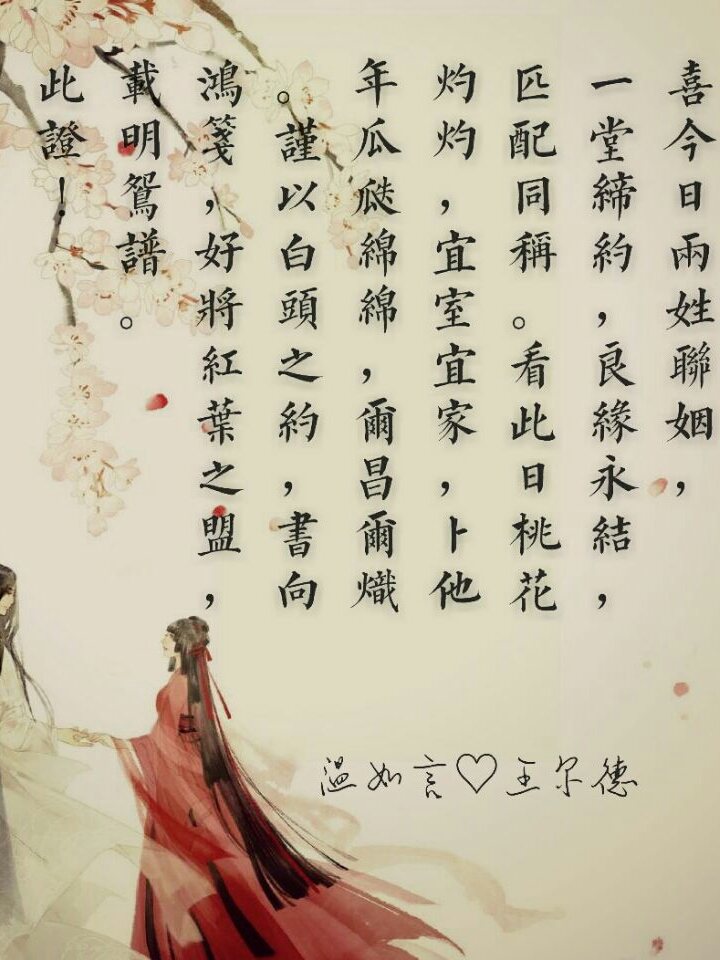 喜今日兩姓聯姻，
一堂締約，良緣永結，
匹配同稱。看此日桃花
灼灼，宜室宜家，卜他
年瓜瓞綿綿，爾昌爾熾
。謹以白頭之約，書向
鴻箋，好將紅葉之盟，
載明鴛譜。
此證！
温如言♡王尔德